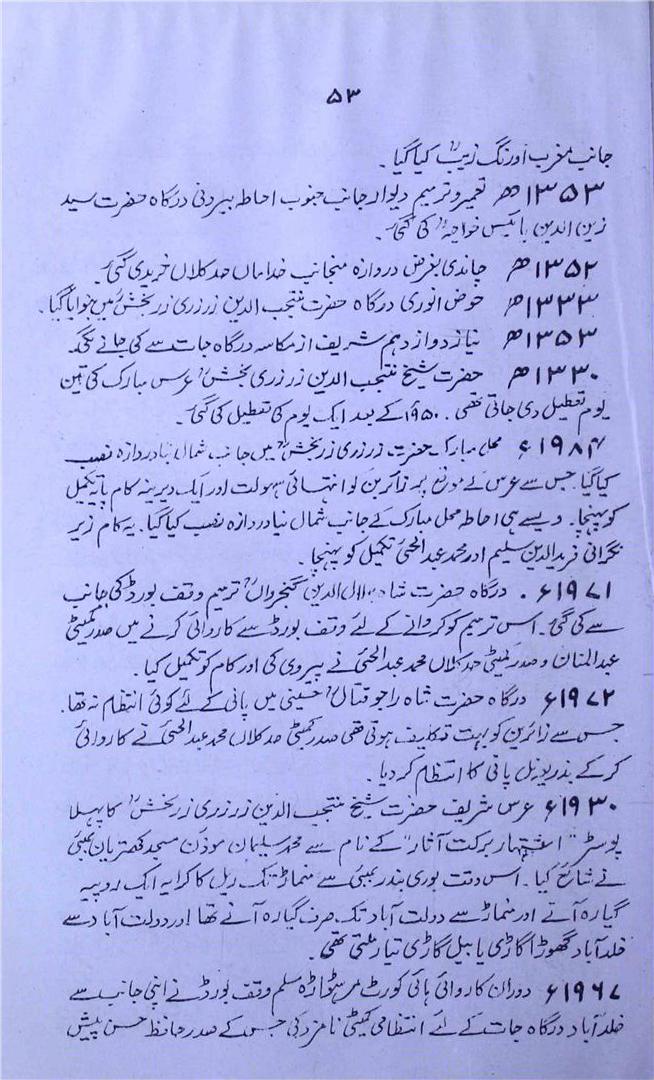 ۵۳
جانب مغرب اورنگ زیبؒ کیا گیا ۔
۱۳۵۳ھ تعمیر و ترمیم دیوار جانب جنوب احاطہ بیرونی درگاہ حضرت سید
زین الدین بائیس خواجہؒ کی گئی ۔
۱۳۵۲ھ چاندی بغرض دروازہ منجانب خداماں حد کلاں خریدی گئی ۔
۱۳۳۳ھ حوض انوری درگاہ حضرت منتجب الدین زرزری زربخشؒ میں بنوایا گیا ۔
۱۳۵۳ھ نیاز دوازدہم شریف از مکاسہ درگاہ جات سے کی جانے لگی ۔
۱۳۳۰ھ حضرت شیخ منتجب الدین زرزری بخشؒ عرس مبارک کی تین
یوم تعطیل دی جاتی تھی ۔ ۱۹۵۰ء کے بعد ایک یوم کی تعطیل کی گئی ۔
۱۹۸۴ء محل مبارک حضرت زرزری زربخشؒ میں جانب شمال نیا دروازہ نصب
کیا گیا جس سے عرس کے موقع پر زائرین کو انتہائی سہولت اور ایک دیرینہ کام پایہ تکمیل
کو پہنچا ۔ ویسے ہی احاطہ محل مبارک کے جانب شمال نیا دروازہ نصب کیا گیا ۔ یہ کام زیر
نگرانی فرید الدین سلیم اور محمد عبدالحئی تکمیل کو پہنچا ۔
۱۹۷۱ء ۔ درگاہ حضرت شاہ جلال الدین گنجرواںؒ ترمیم وقف بورڈ کی جانب
سے کی گئی ۔ اس ترمیم کو کروانے کے لئے وقف بورڈ سے کاروائی کرنے میں صدر کمیٹی
عبدالمنان و صدر کمیٹی حد کلاں محمد عبدالحئی نے پیروی کی اور کام کو تکمیل کیا ۔
۱۹۷۲ء درگاہ حضرت شاہ راجو قتالؒ حسینی میں پانی کے لئے کوئی انتظام نہ تھا ۔
جس سے زائرین کو بہت تکلیف ہوتی تھی صدر کمیٹی حد کلاں محمد عبدالحئی نے کاروائی
کر کے بذریعہ نل پانی کا انتظام کر دیا ۔
۱۹۳۰ء عرس شریف حضرت شیخ منتجب الدین زرزری زربخشؒ کا پہلا
پوسٹر "اشتہار برکت آثار" کے نام سے محمد سلیمان موذن مسجد قصریان بمبئی
نے شائع کیا ۔ اس وقت بوری بندر بمبئی سے منماڑ تک ریل کا کرایہ ایک روپیہ
گیارہ آنے اور منماڑ سے دولت آباد تک صرف گیارہ آنے تھا اور دولت آباد سے
خلد آباد گھوڑا گاڑی یا بیل گاڑی تیار ملتی تھی ۔
۱۹۶۷ء دوران کاروائی ہائی کورٹ مرہٹواڑہ مسلم وقف بورڈ نے اپنی جانب سے
خلد آباد درگاہ جات کے لئے انتظامی کمیٹی نامزد کی جس کے صدر حافظ حسن پیش